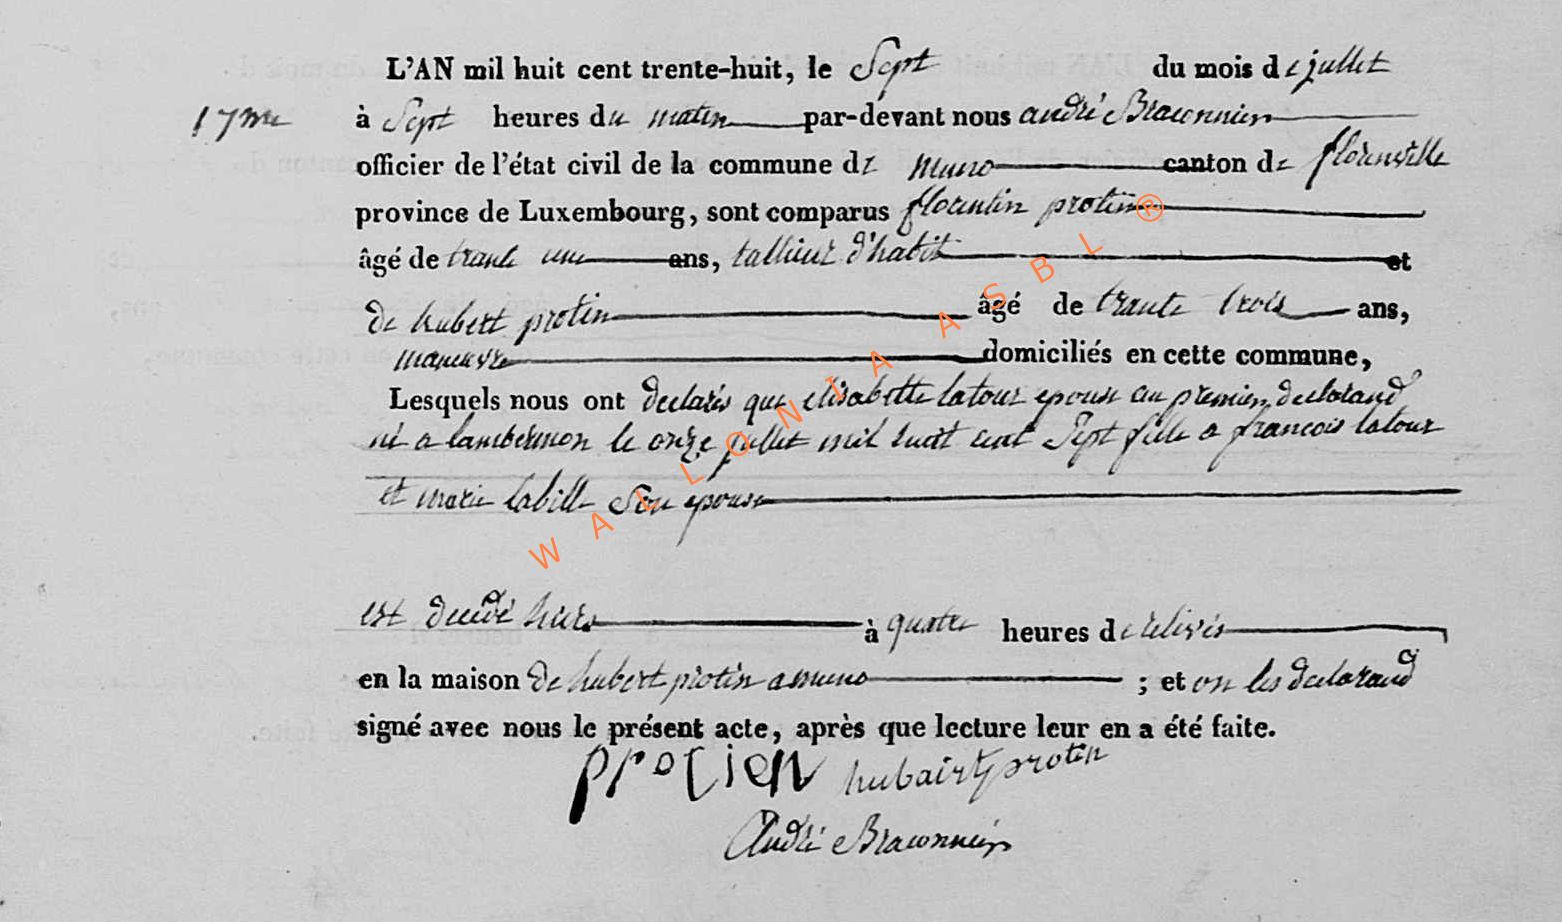 L'AN mil huit cent trente-huit, le Sept du mois de jullet
17me à Sept heures du matin par-devant nous andré Braconnier
officier de l'état civil de la commune de muno canton de florenville
province de Luxembourg, sont comparus florentin protin
âgé de trante une ans, tallieur d'habit et
de hubert protin âgé de trante trois ans,
maneuvre domiciliés en cette commune,
Lesquels nous ont declarés que elisabette latour epouse au premier declarand
né a lambermon le onze jullet mil huit cent Sept fille a francois latour
et marie labille Son epouse
est decedé hiere à quatre heures de relevés
en la maison de hubert protin a muno ; et on les declarand
signé avec nous le présent acte, après que lecture leur en a été faite.
protien hubairt protin
André Braconnier
WALLONIA ASBL ®